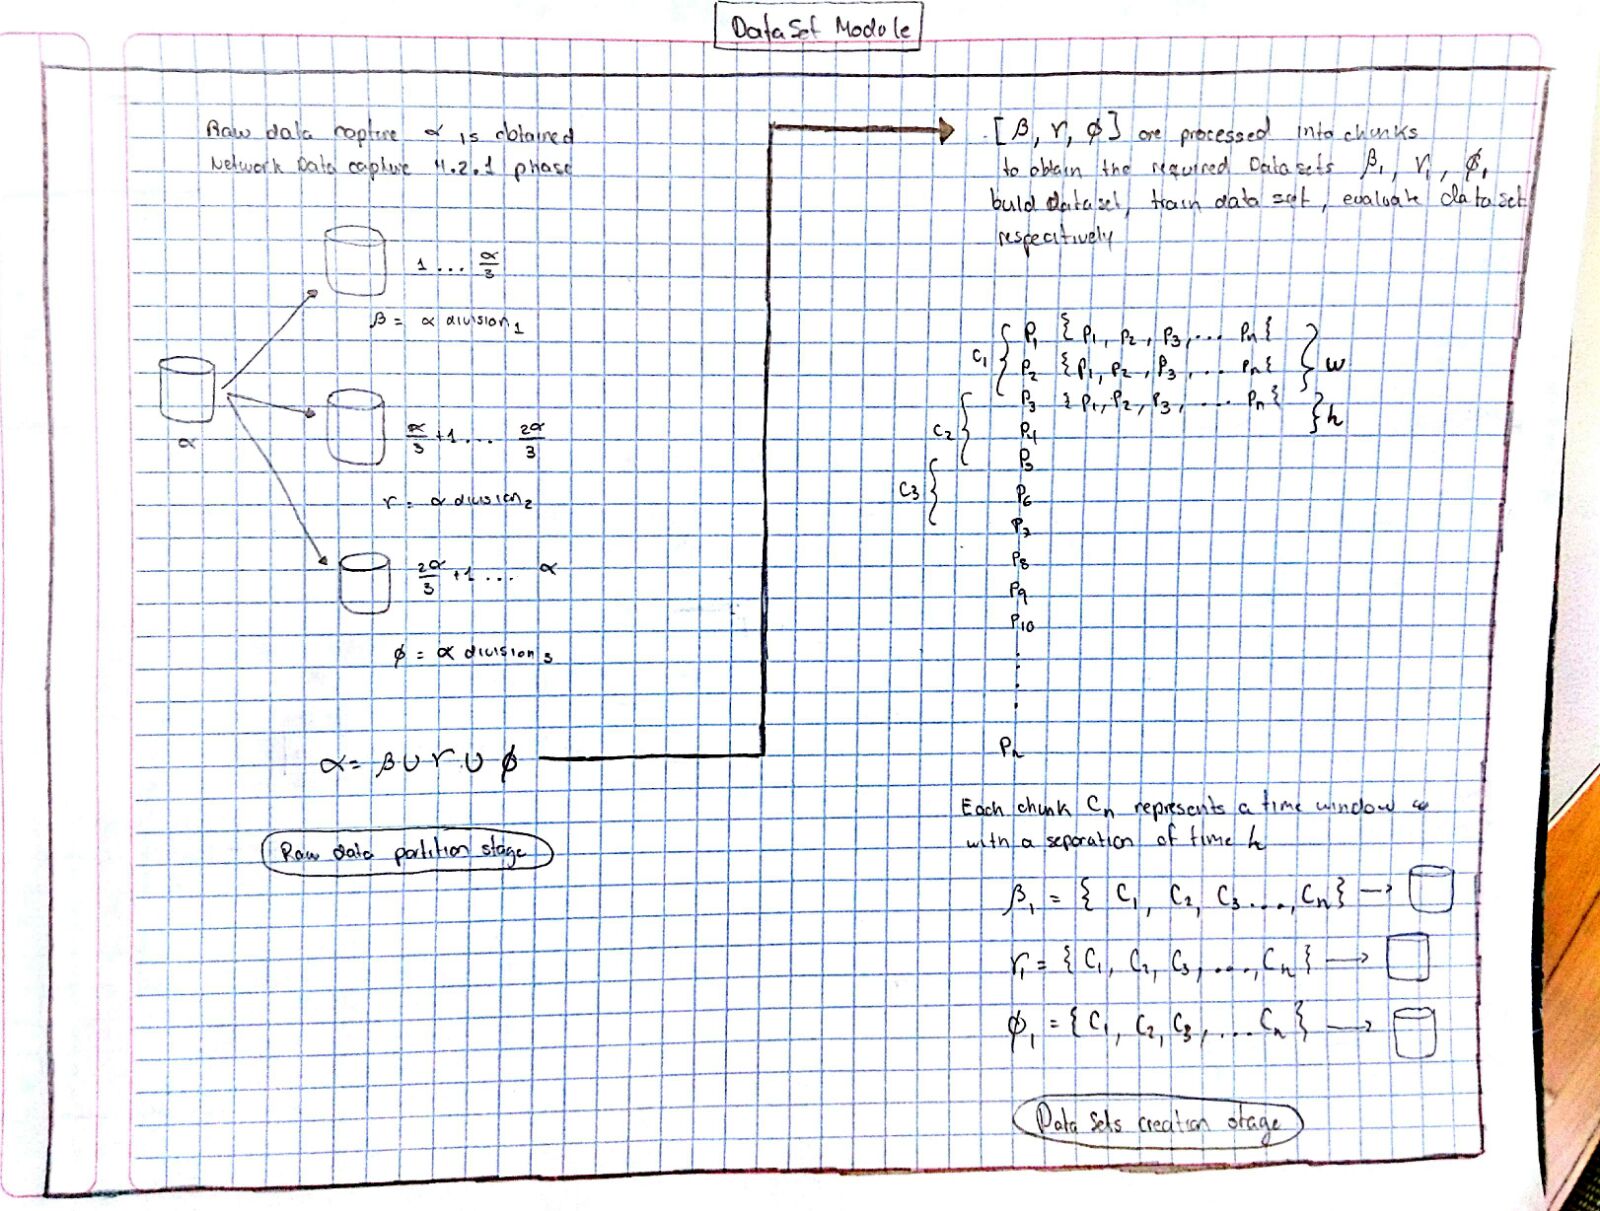 DataSet Module
Raw data capture α is obtained
Network Data capture 4.2.1 phase
1 ... α/3
β = α division1
α
α/3 +1 ... 2α/3
r = α division2
2α/3 +1 ... α
ϕ = α division3
α = β ∪ r ∪ ϕ
Raw data partition stage
[β, r, ϕ] are processed into chunks
to obtain the required Datasets β1, r1, ϕ1
build dataset, train data set, evaluate dataset
respectively
C1 { P1 { P1, P2, P3, ... Pn { } w
P2 { P1, P2, P3, ... Pn {
C2 { P3 { P1, P2, P3, ... Pn } } h
P4
C3 { P5
P6
P7
P8
P9
P10
Pn
Each chunk Cn represents a time window ω
with a separation of time h
β1 = { C1, C2, C3 ..., Cn } →
r1 = { C1, C2, C3, ..., Cn } →
ϕ1 = { C1, C2, C3, ... Cn } →
Data Sets creation stage